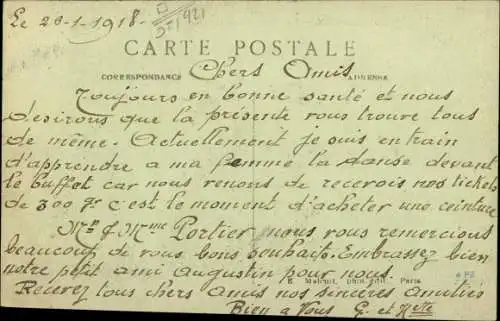 Le 20-1-1918.
CARTE POSTALE
CORRESPONDANCE Chers Amis ADRESSE
Toujours en bonne santé et nous
desirons que la présente vous trouve tous
de même. Actuellement je suis en train
d'apprendre a ma femme la danse devant
le buffet car nous venons de recevoir nos tickets
de 300 gr c'est le moment d'acheter une ceinture
Mr & Mme Portier nous vous remercions
beaucoup de vous bons souhait. Embrassez bien
notre petit ami Augustin pour nous.
E. phot. édit. Paris
Recevez tous chers Amis nos sincères amitiés
Bien a Vous G. et Hette